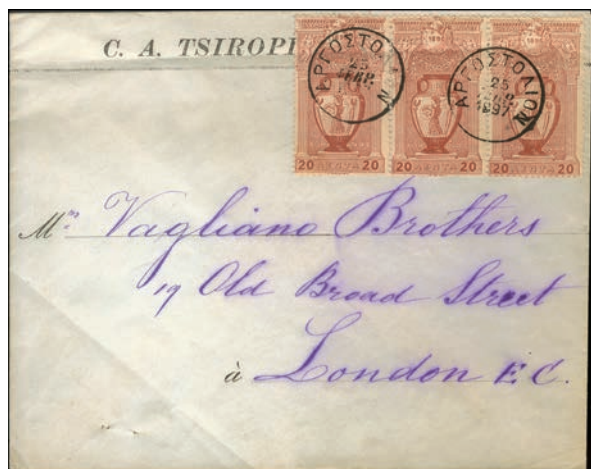 C. A. TSIROPI
ΑΡΓΟΣΤΟΛΙΟΝ
25
ΑΡΓΟΣΤΟΛΙΟΝ
25
1897
20 ΛΕΠΤΑ 20
20 ΛΕΠΤΑ 20
20 ΛΕΠΤΑ 20
Vagliano Brothers
19 Old Broad Street
à London E.C.